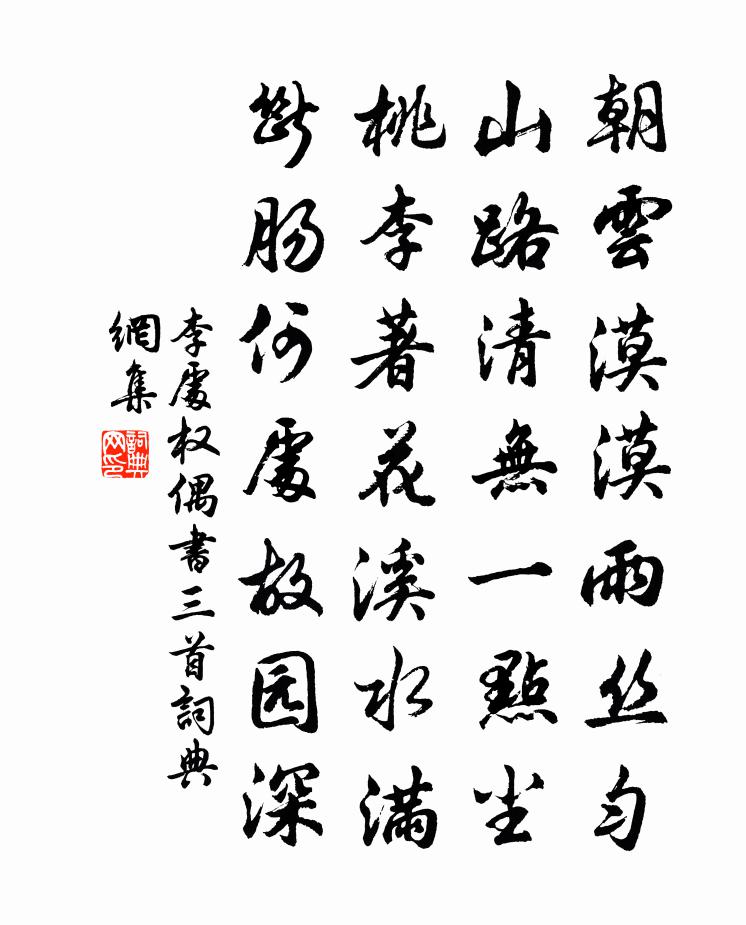 朝雲漠漠雨丝匀
山路清無一點尘
桃李著花溪水滿
斷肠何處故园深
李處权偶書三首詞典
網集
詞典
网印